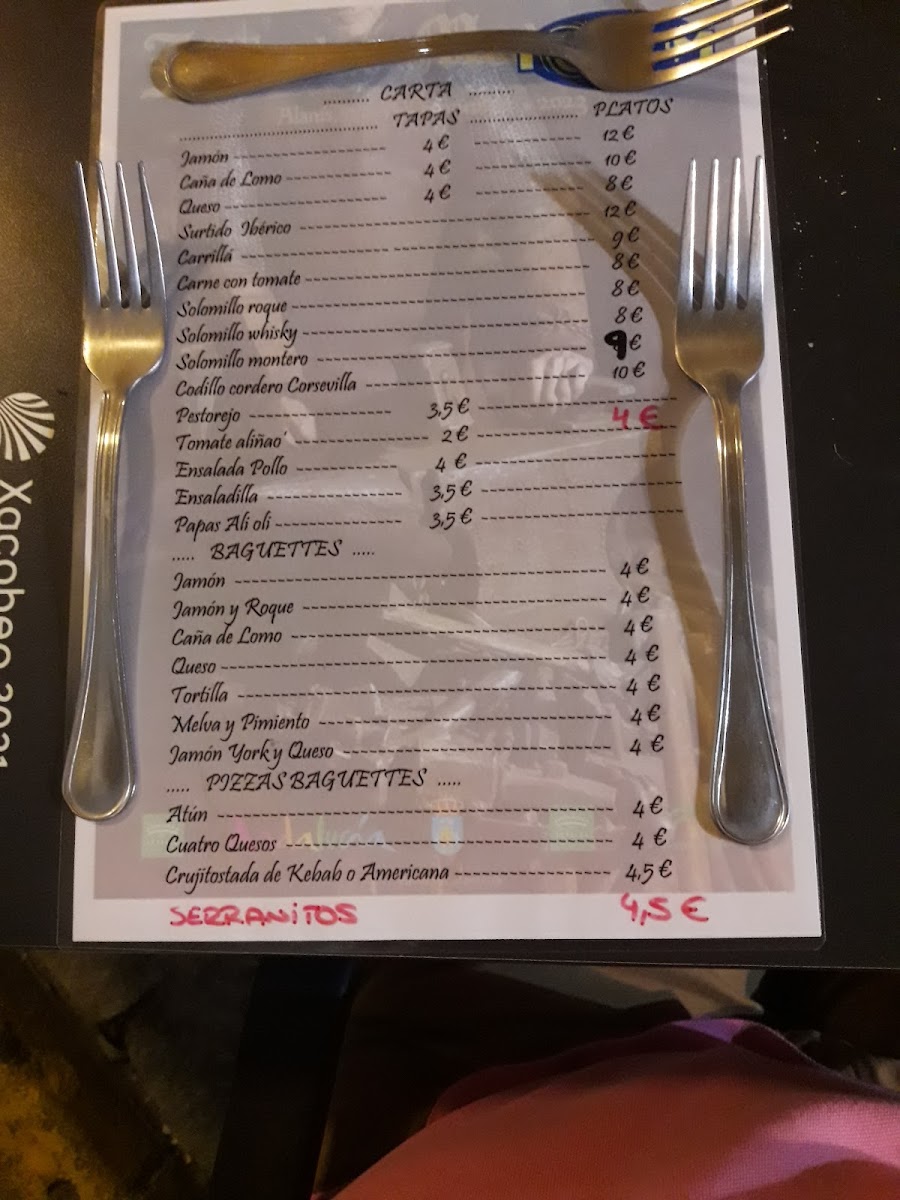 .......... CARTA ..........
.................................... TAPAS ........................ PLATOS
Jamón ---------------------- 4 € --------------- 12 €
Caña de Lomo --------------- 4 € --------------- 10 €
Queso ---------------------- 4 € --------------- 8 €
Surtido Ibérico ---------------------------------------- 12 €
Carrillá ---------------------------------------- 9 €
Carne con tomate ---------------------------------------- 8 €
Solomillo roque ---------------------------------------- 8 €
Solomillo whisky ---------------------------------------- 8 €
Solomillo montero ---------------------------------------- 9 €
Codillo cordero Corsevilla ------------------------------ 10 €
Pestorejo -------------------- 3,5 € --------------------
Tomate aliñao' -------------------- 2 € -------------------- 4 €
Ensalada Pollo --------------- 4 € --------------------
Ensaladilla -------------------- 3,5 € --------------------
Papas Ali oli -------------------- 3,5 € --------------------
..... BAGUETTES .....
Jamón ---------------------------------------- 4 €
Jamón y Roque ---------------------------------------- 4 €
Caña de Lomo ---------------------------------------- 4 €
Queso ---------------------------------------- 4 €
Tortilla ---------------------------------------- 4 €
Melva y Pimiento ---------------------------------------- 4 €
Jamón York y Queso ------------------------------ 4 €
..... PIZZAS BAGUETTES .....
Atún ---------------------------------------- 4 €
Cuatro Quesos ---------------------------------------- 4 €
Crujitostada de Kebab o Americana -------------------- 4,5 €
SERRANITOS 4,5 €
Xacobeo 2021